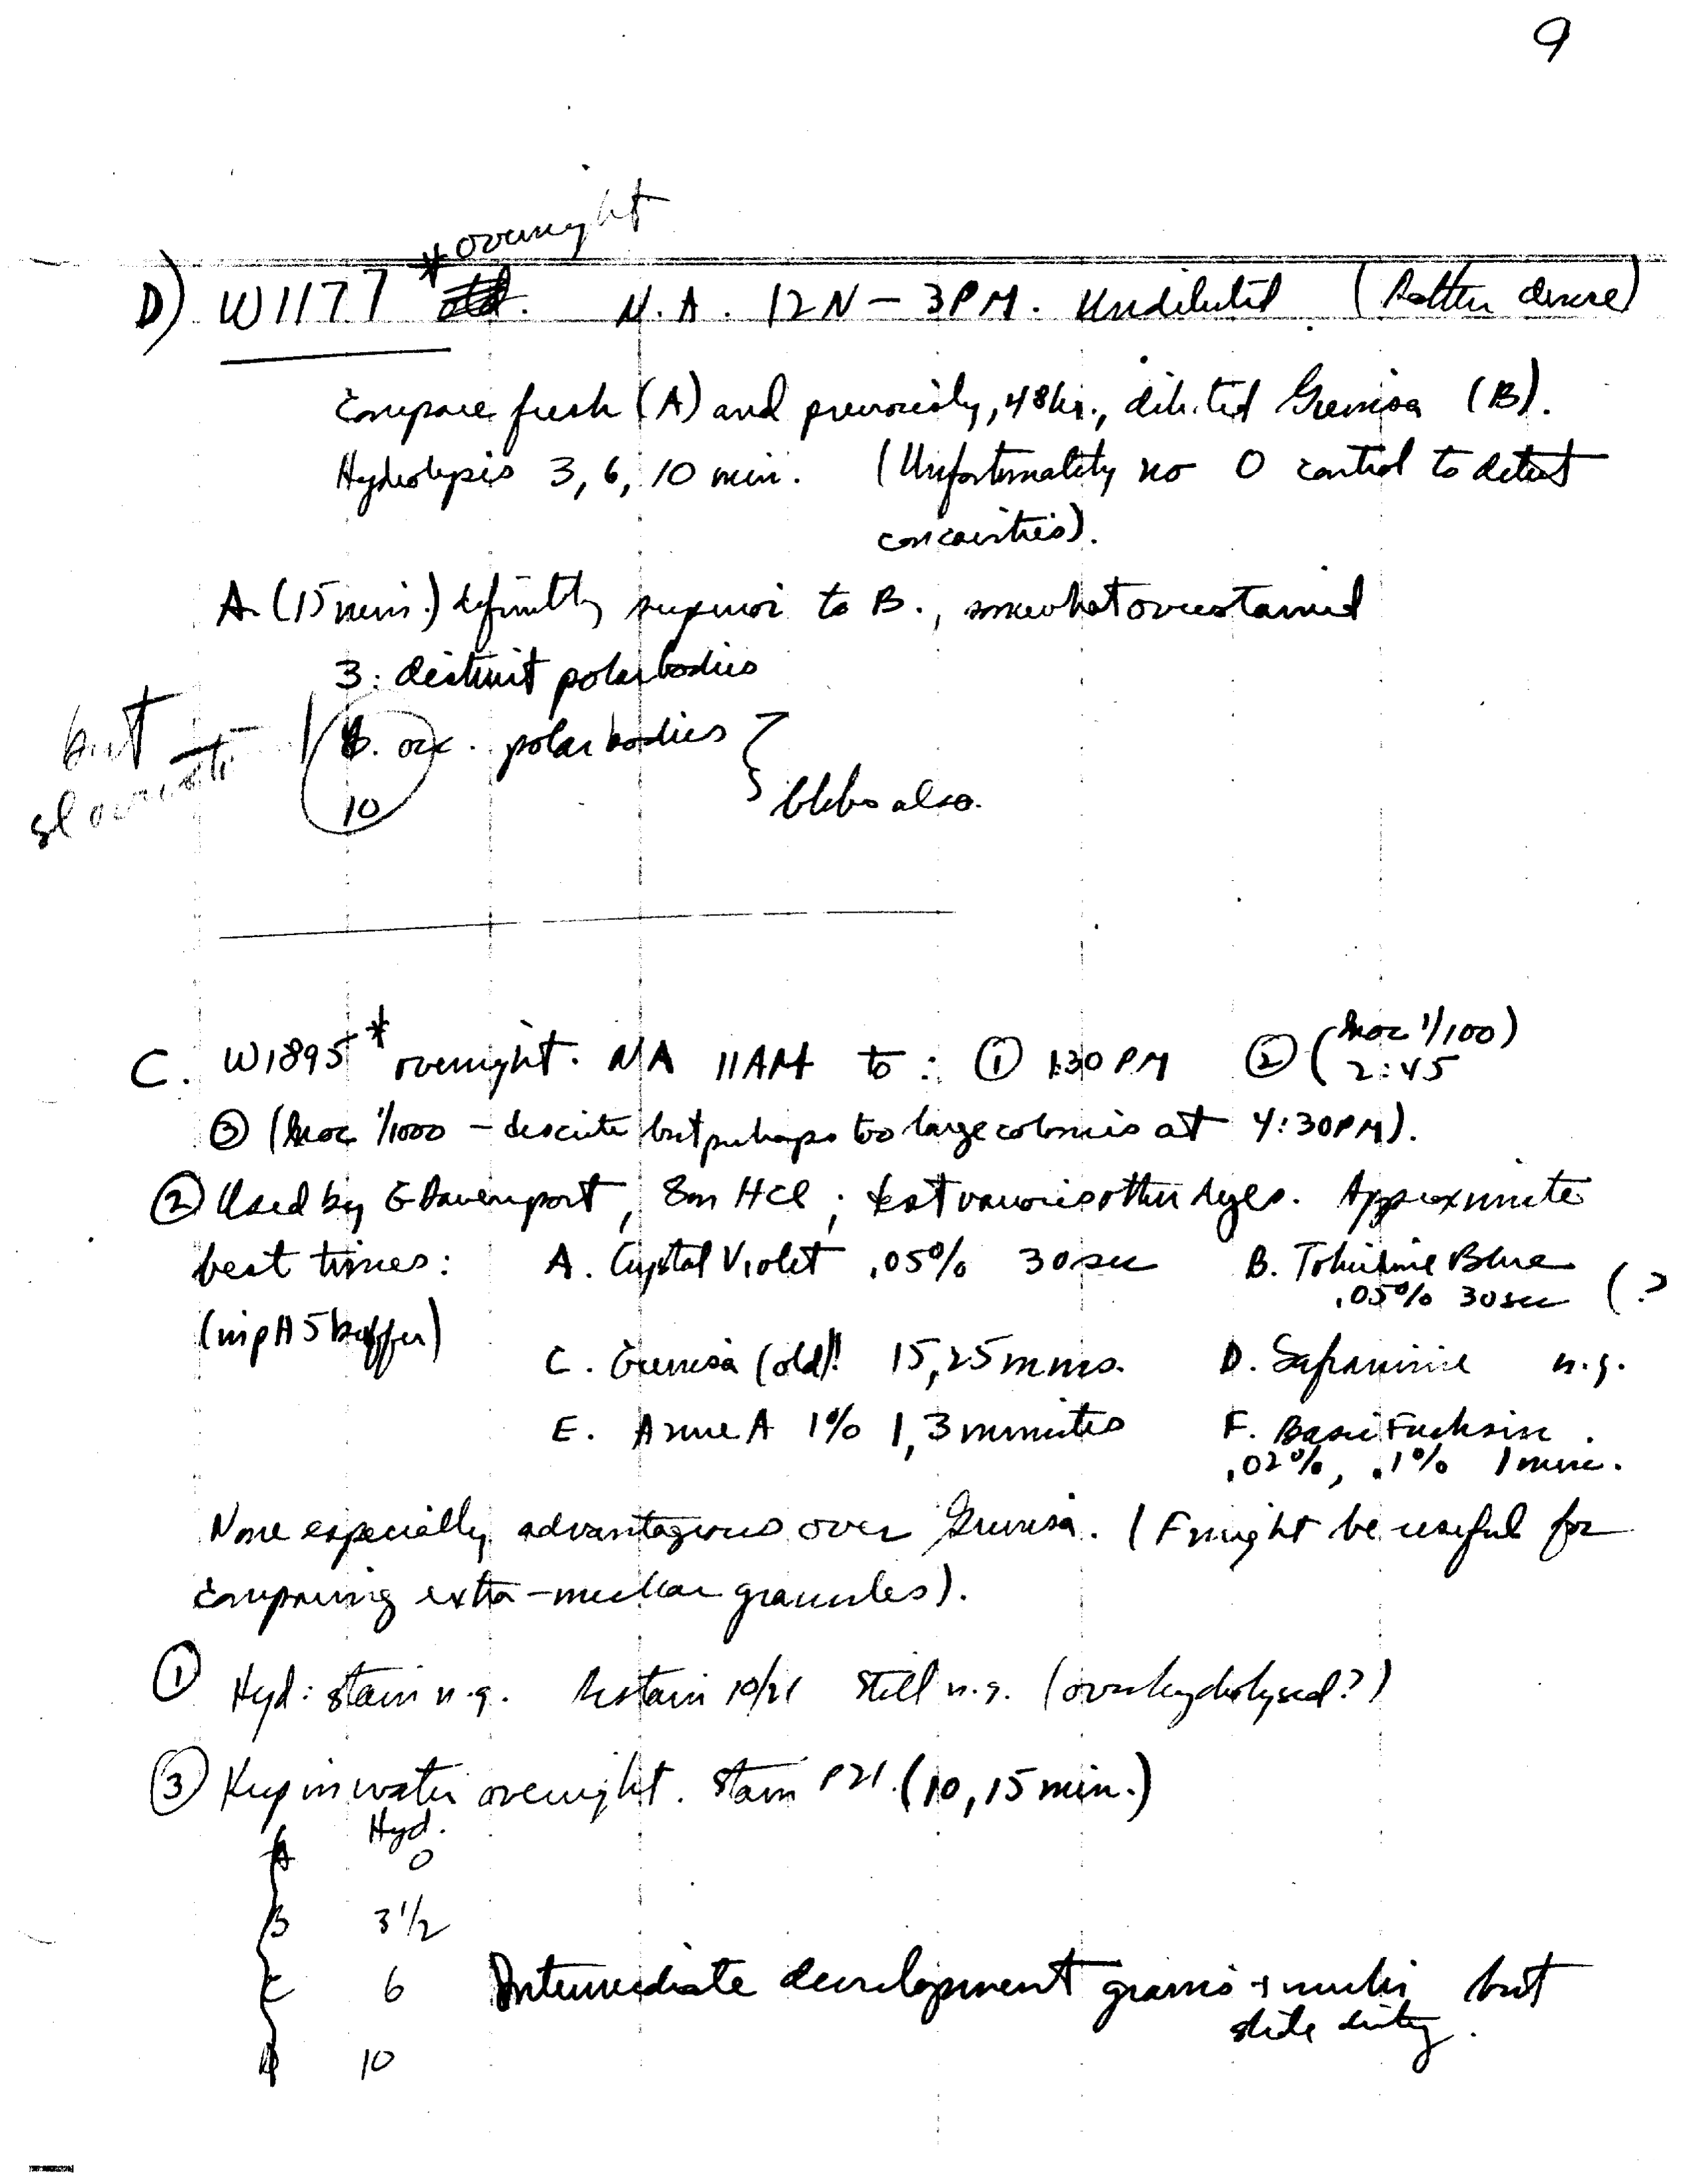 9
* overnight
D) W1177 N.A. 12N - 3PM. Undiluted (Rather dense)
Compare fresh (A) and previously, 48hr., diluted Giemsa (B).
Hydrolysis 3, 6, 10 min. (Unfortunately no 0 control to detect
concavities).
A. (15 min.) definitly superior to B., somewhat overstained
3: distinct polar bodies
but
6. occ. polar bodies
sl
10
blebs also.
C. W1895 * overnight. NA 11AM to: ① 1:30 PM ② (Inoc 1/100)
2:45
③ (Inoc 1/1000 - discrete but perhaps too large colonies at 4:30PM).
② Used by GDavenport, 8m HCl; test various other dyes. Approximate
best times: A. Crystal Violet .05% 30 sec B. Toluidine Blue
.05% 30 sec (?
(in pH 5 buffer)
C. Giemsa (old)! 15, 25 mins. D. Safranine n.g.
E. Azure A 1% 1, 3 minutes F. Basic Fuchsin.
.02%, .1% 1 min.
None especially advantageous over Giemsa. (F might be useful for
comparing extra-nuclear granules).
① Hyd: stain n.g. Restain 10/21 still n.g. (overhydrolysed?)
③ Keep in water overnight. Stain P21. (10, 15 min.)
Hyd.
A 0
B 3 1/2
C 6 Intermediate development grains + nuclei but
slide dirty.
D 10